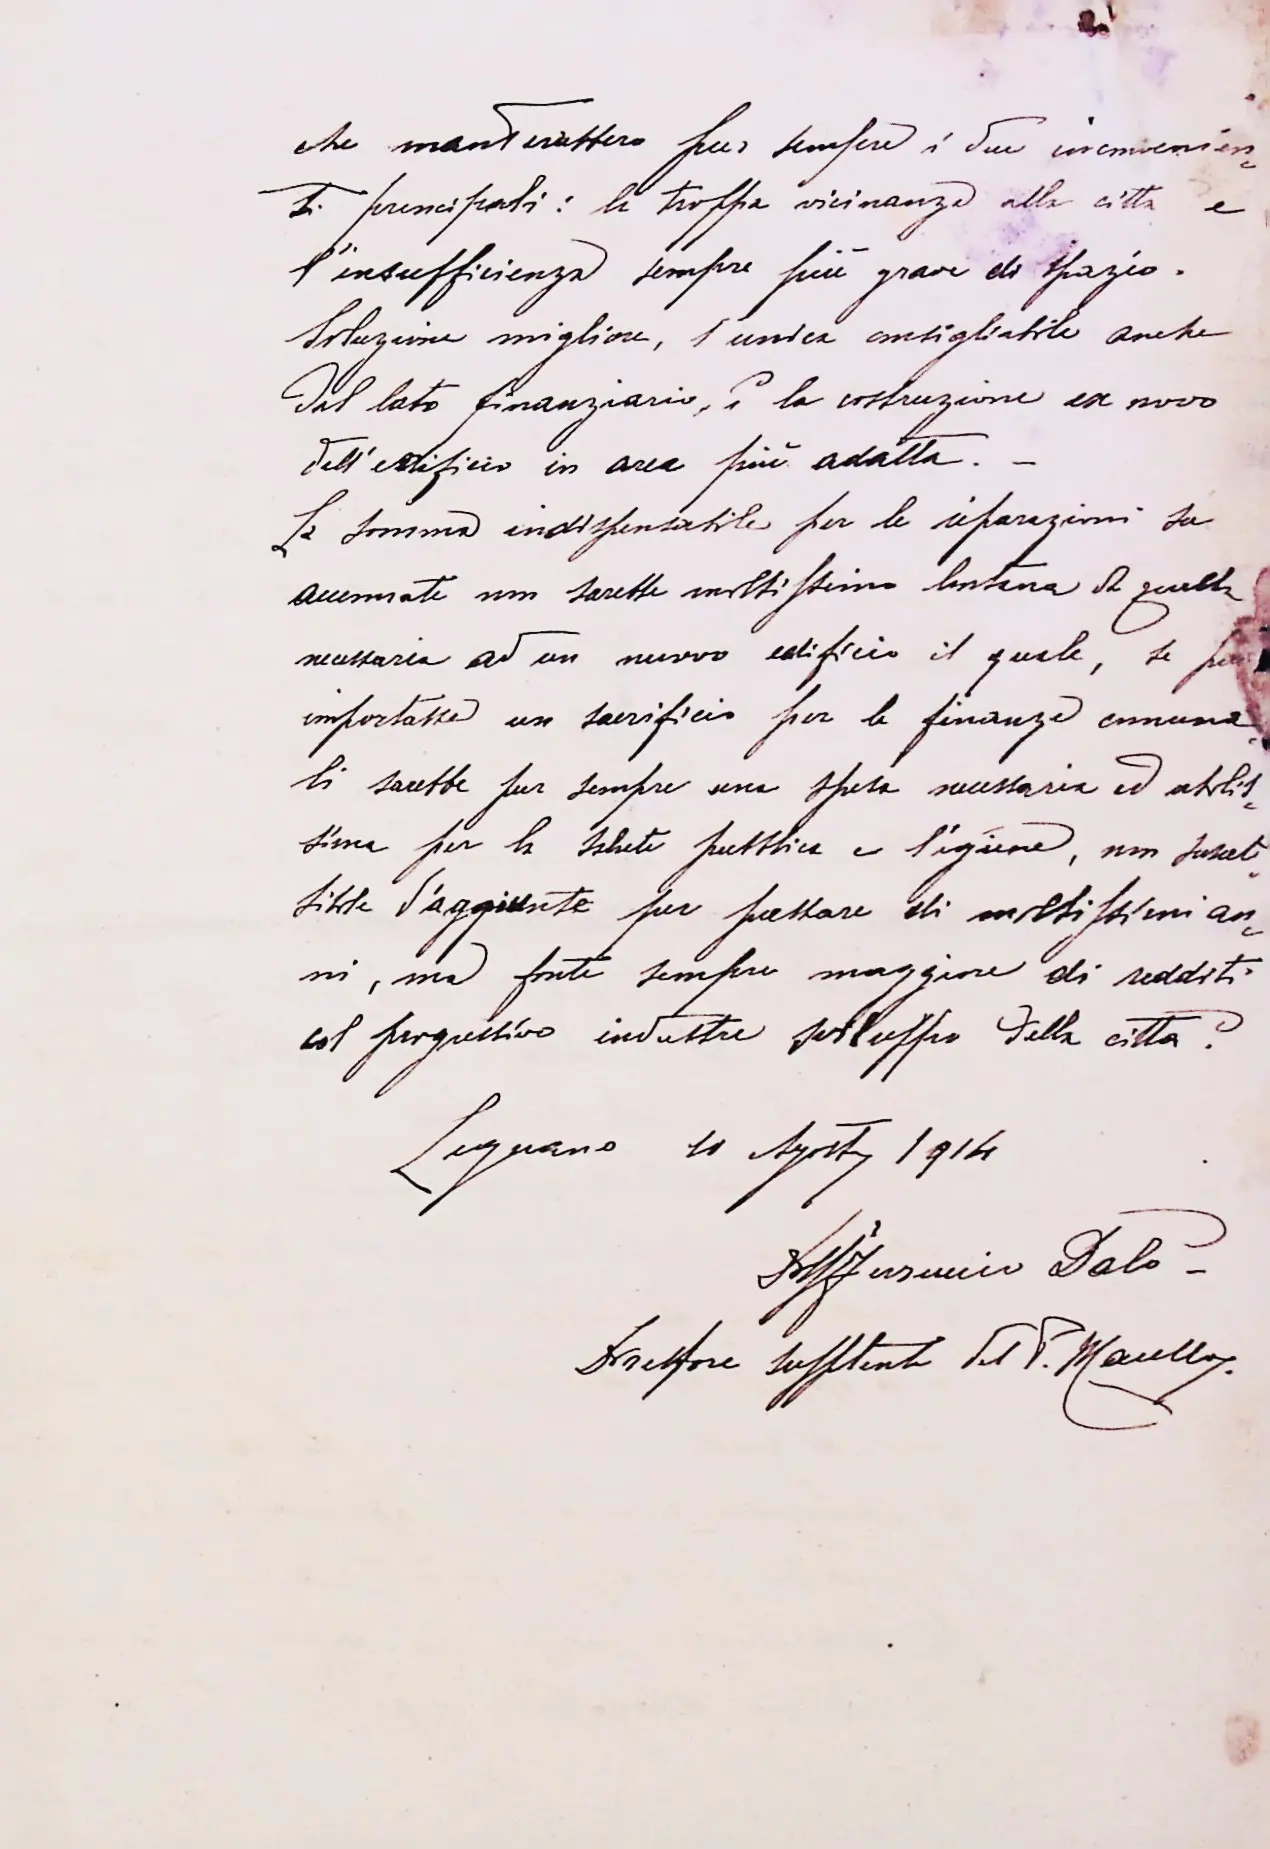 che manterrebbero pur sempre i due inconvenien-
ti principali: la troppa vicinanza alla città e
l'insufficienza sempre più grave di spazio.
Soluzione migliore, l'unica consigliabile anche
dal lato finanziario, è la costruzione ex novo
dell'edificio in area più adatta. -
La somma indispensabile per le riparazioni su
accennate non sarebbe moltissimo lontana da quella
necessaria ad un nuovo edificio il quale, se pur
importasse un sacrificio per le finanze comuna-
li sarebbe pur sempre una spesa necessaria ed utilis-
sima per la salute pubblica e l'igiene, non suscet-
tibile d'aggiunte per passare di moltissimi an-
ni, ma fonte sempre maggiore di redditi
col progressivo industre sviluppo della città.
Legnano 10 Agosto 1914
Dott. Dalò -
Direttore supplente del P. Macello.